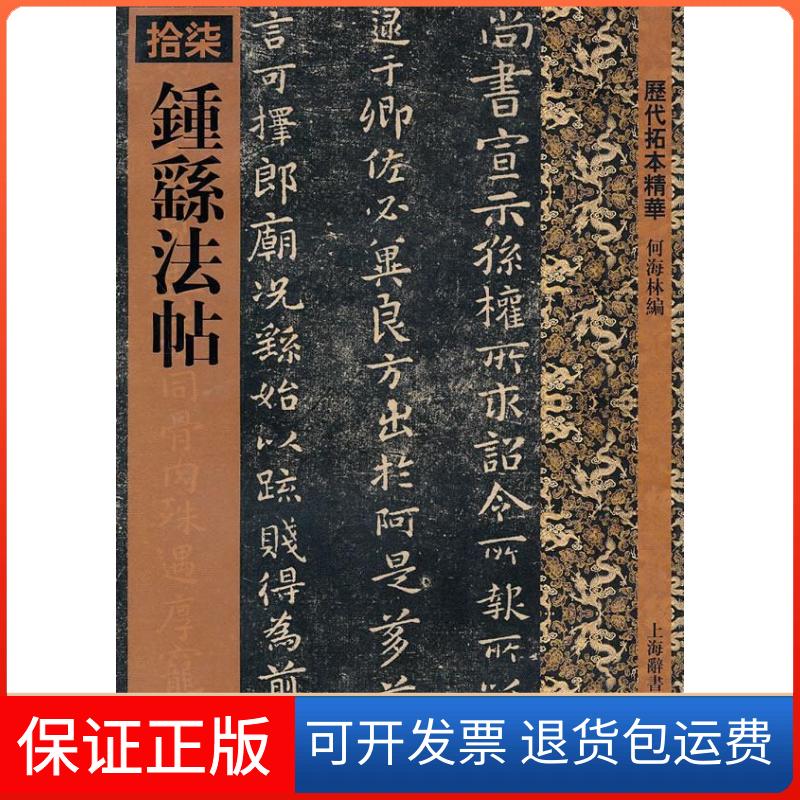 拾柒
鍾繇法帖
尚書宣示孫權所求詔令所報所
逮于卿佐必冀良方出於阿是芻
言可擇郎廟況繇始以疏賤得為前
同骨肉殊遇厚寵
歷代拓本精華
何海林編
上海辭書
保证正版
可开发票 退货包运费